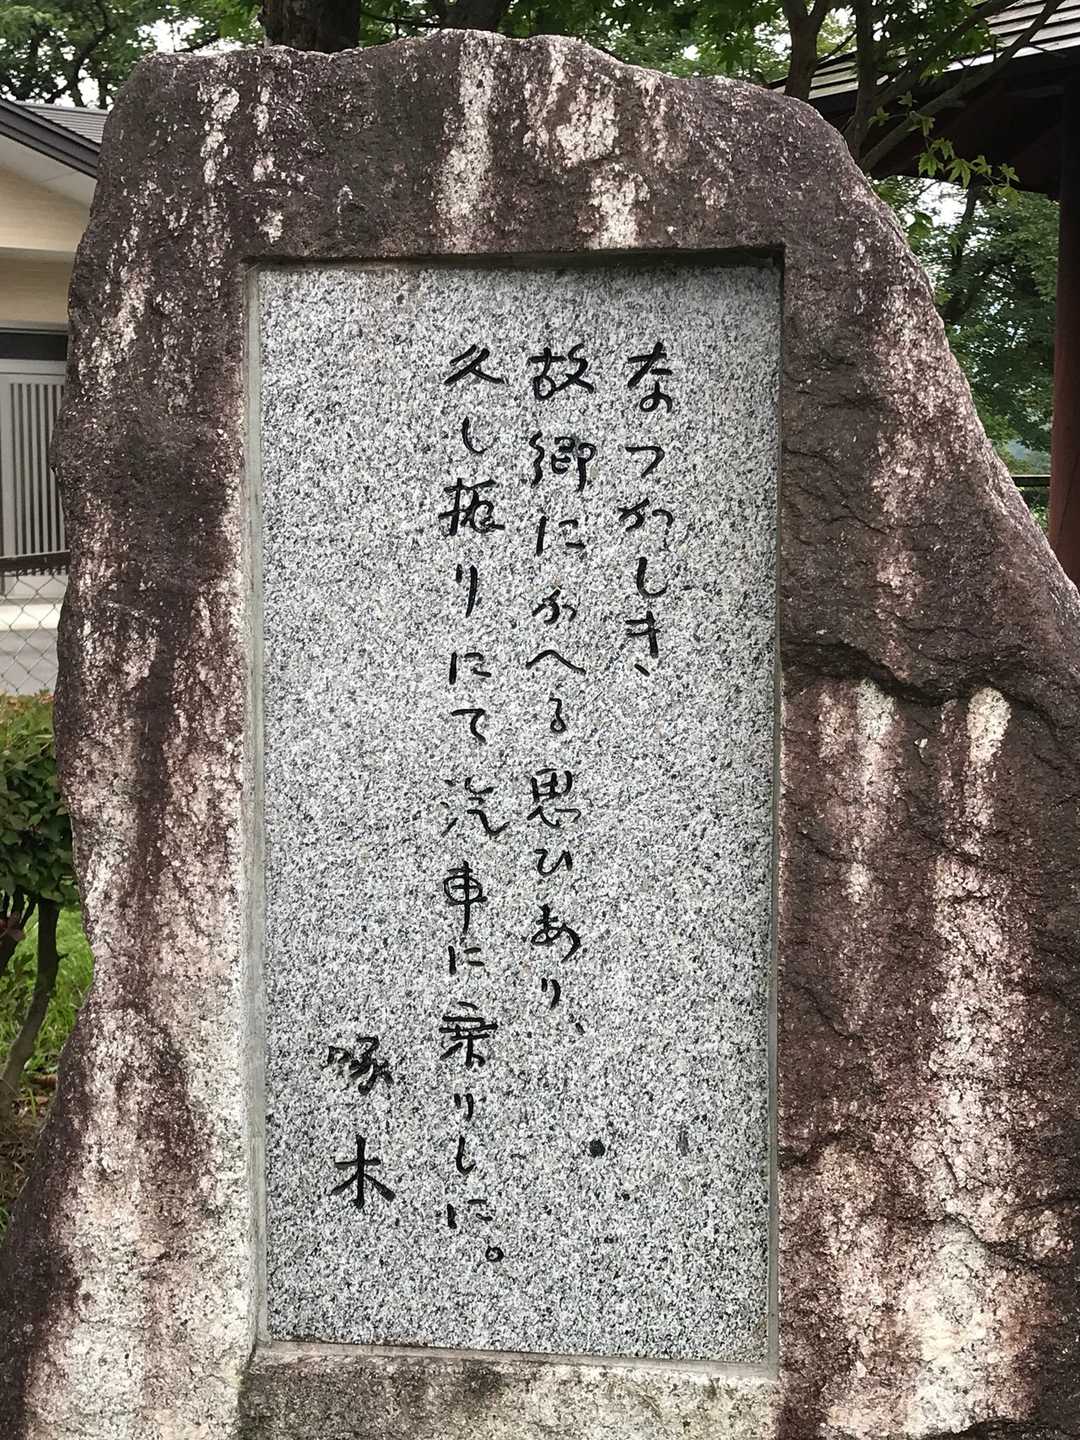 なつかしき、
故郷にかへる思ひあり、
久し振りにて汽車に乗りしに。
啄木